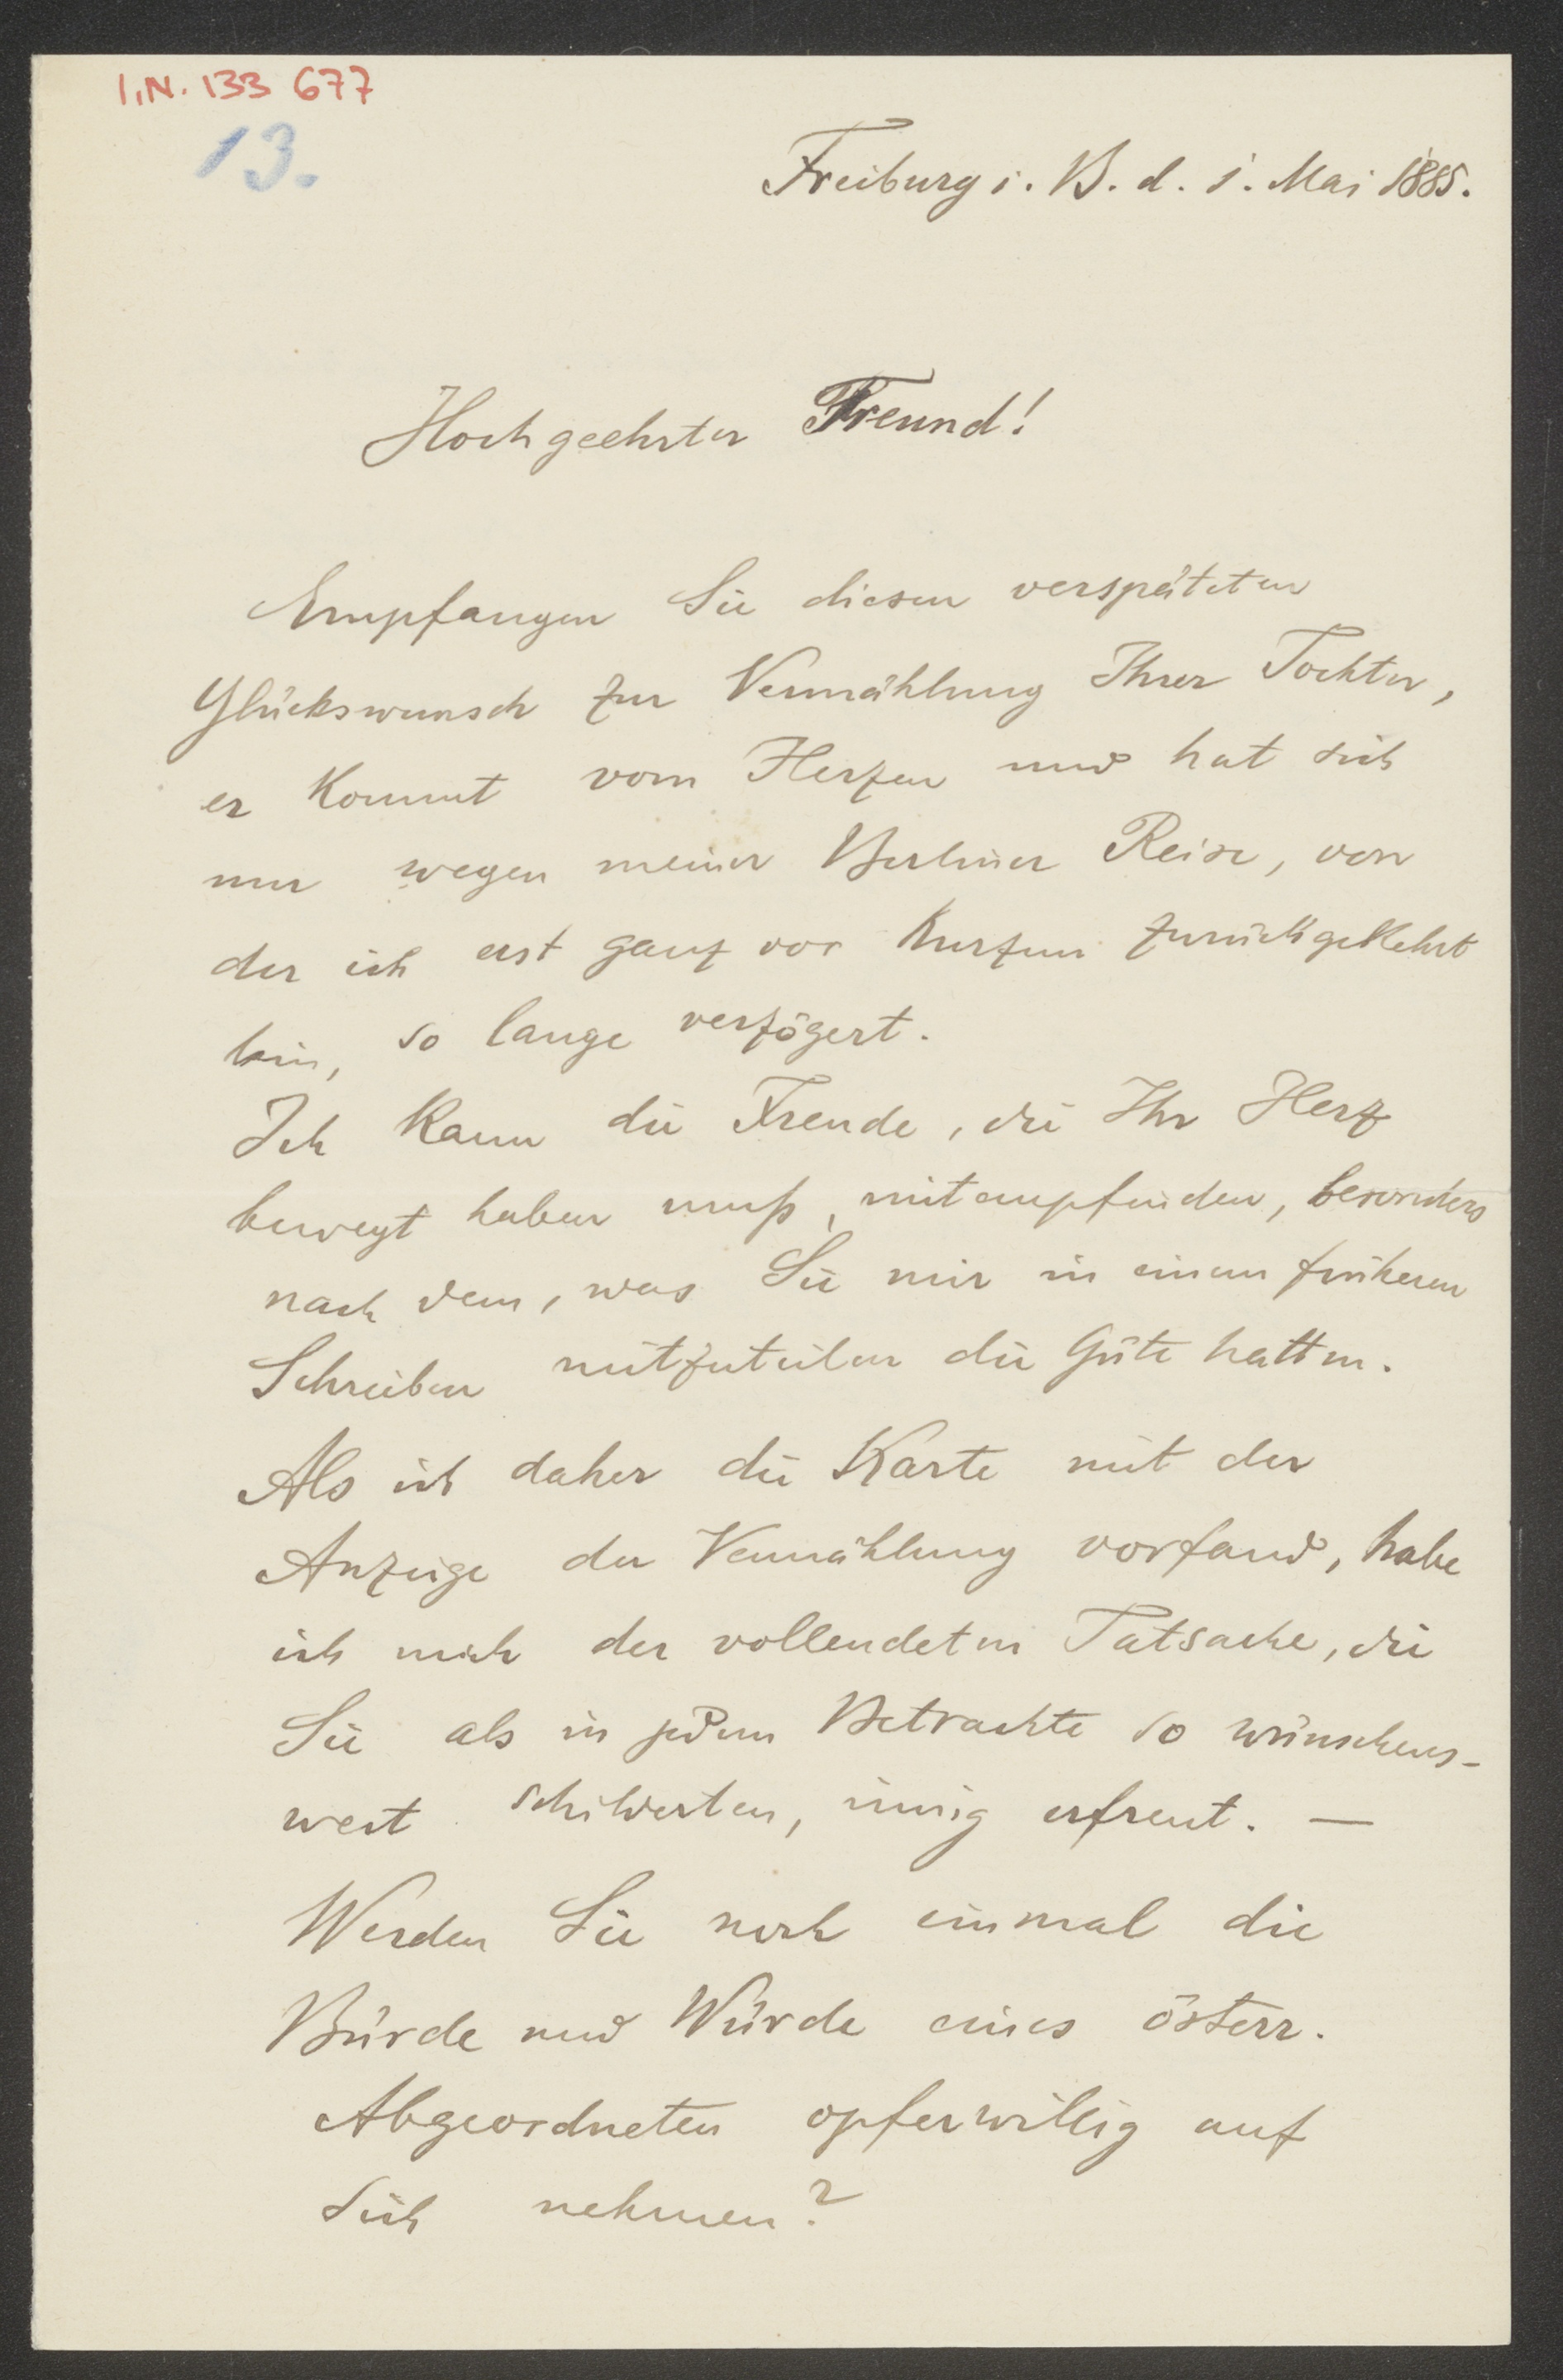 I.N. 133 677
13.
Freiburg i. B. d. 1. Mai 1885.
Hochgeehrter Freund!
Empfangen Sie diesen verspäteten
Glückswunsch zur Vermählung Ihrer Tochter,
er kommt vom Herzen und hat sich
nur wegen meiner Berliner Reise, von
der ich erst ganz vor Kurzem zurückgekehrt
bin, so lange verzögert.
Ich kann die Freude, die Ihr Herz
bewegt haben muß, mitempfinden, besonders
nach dem, was Sie mir in einem früheren
Schreiben mitzuteilen die Güte hatten.
Als ich daher die Karte mit der
Anzeige der Vermählung vorfand, habe
ich mich der vollendeten Tatsache, die
Sie als in jedem Betrachte so wünschens-
wert schilderten, innig erfreut. —
Werden Sie noch einmal die
Bürde und Würde eines österr.
Abgeordneten opferwillig auf
sich nehmen?